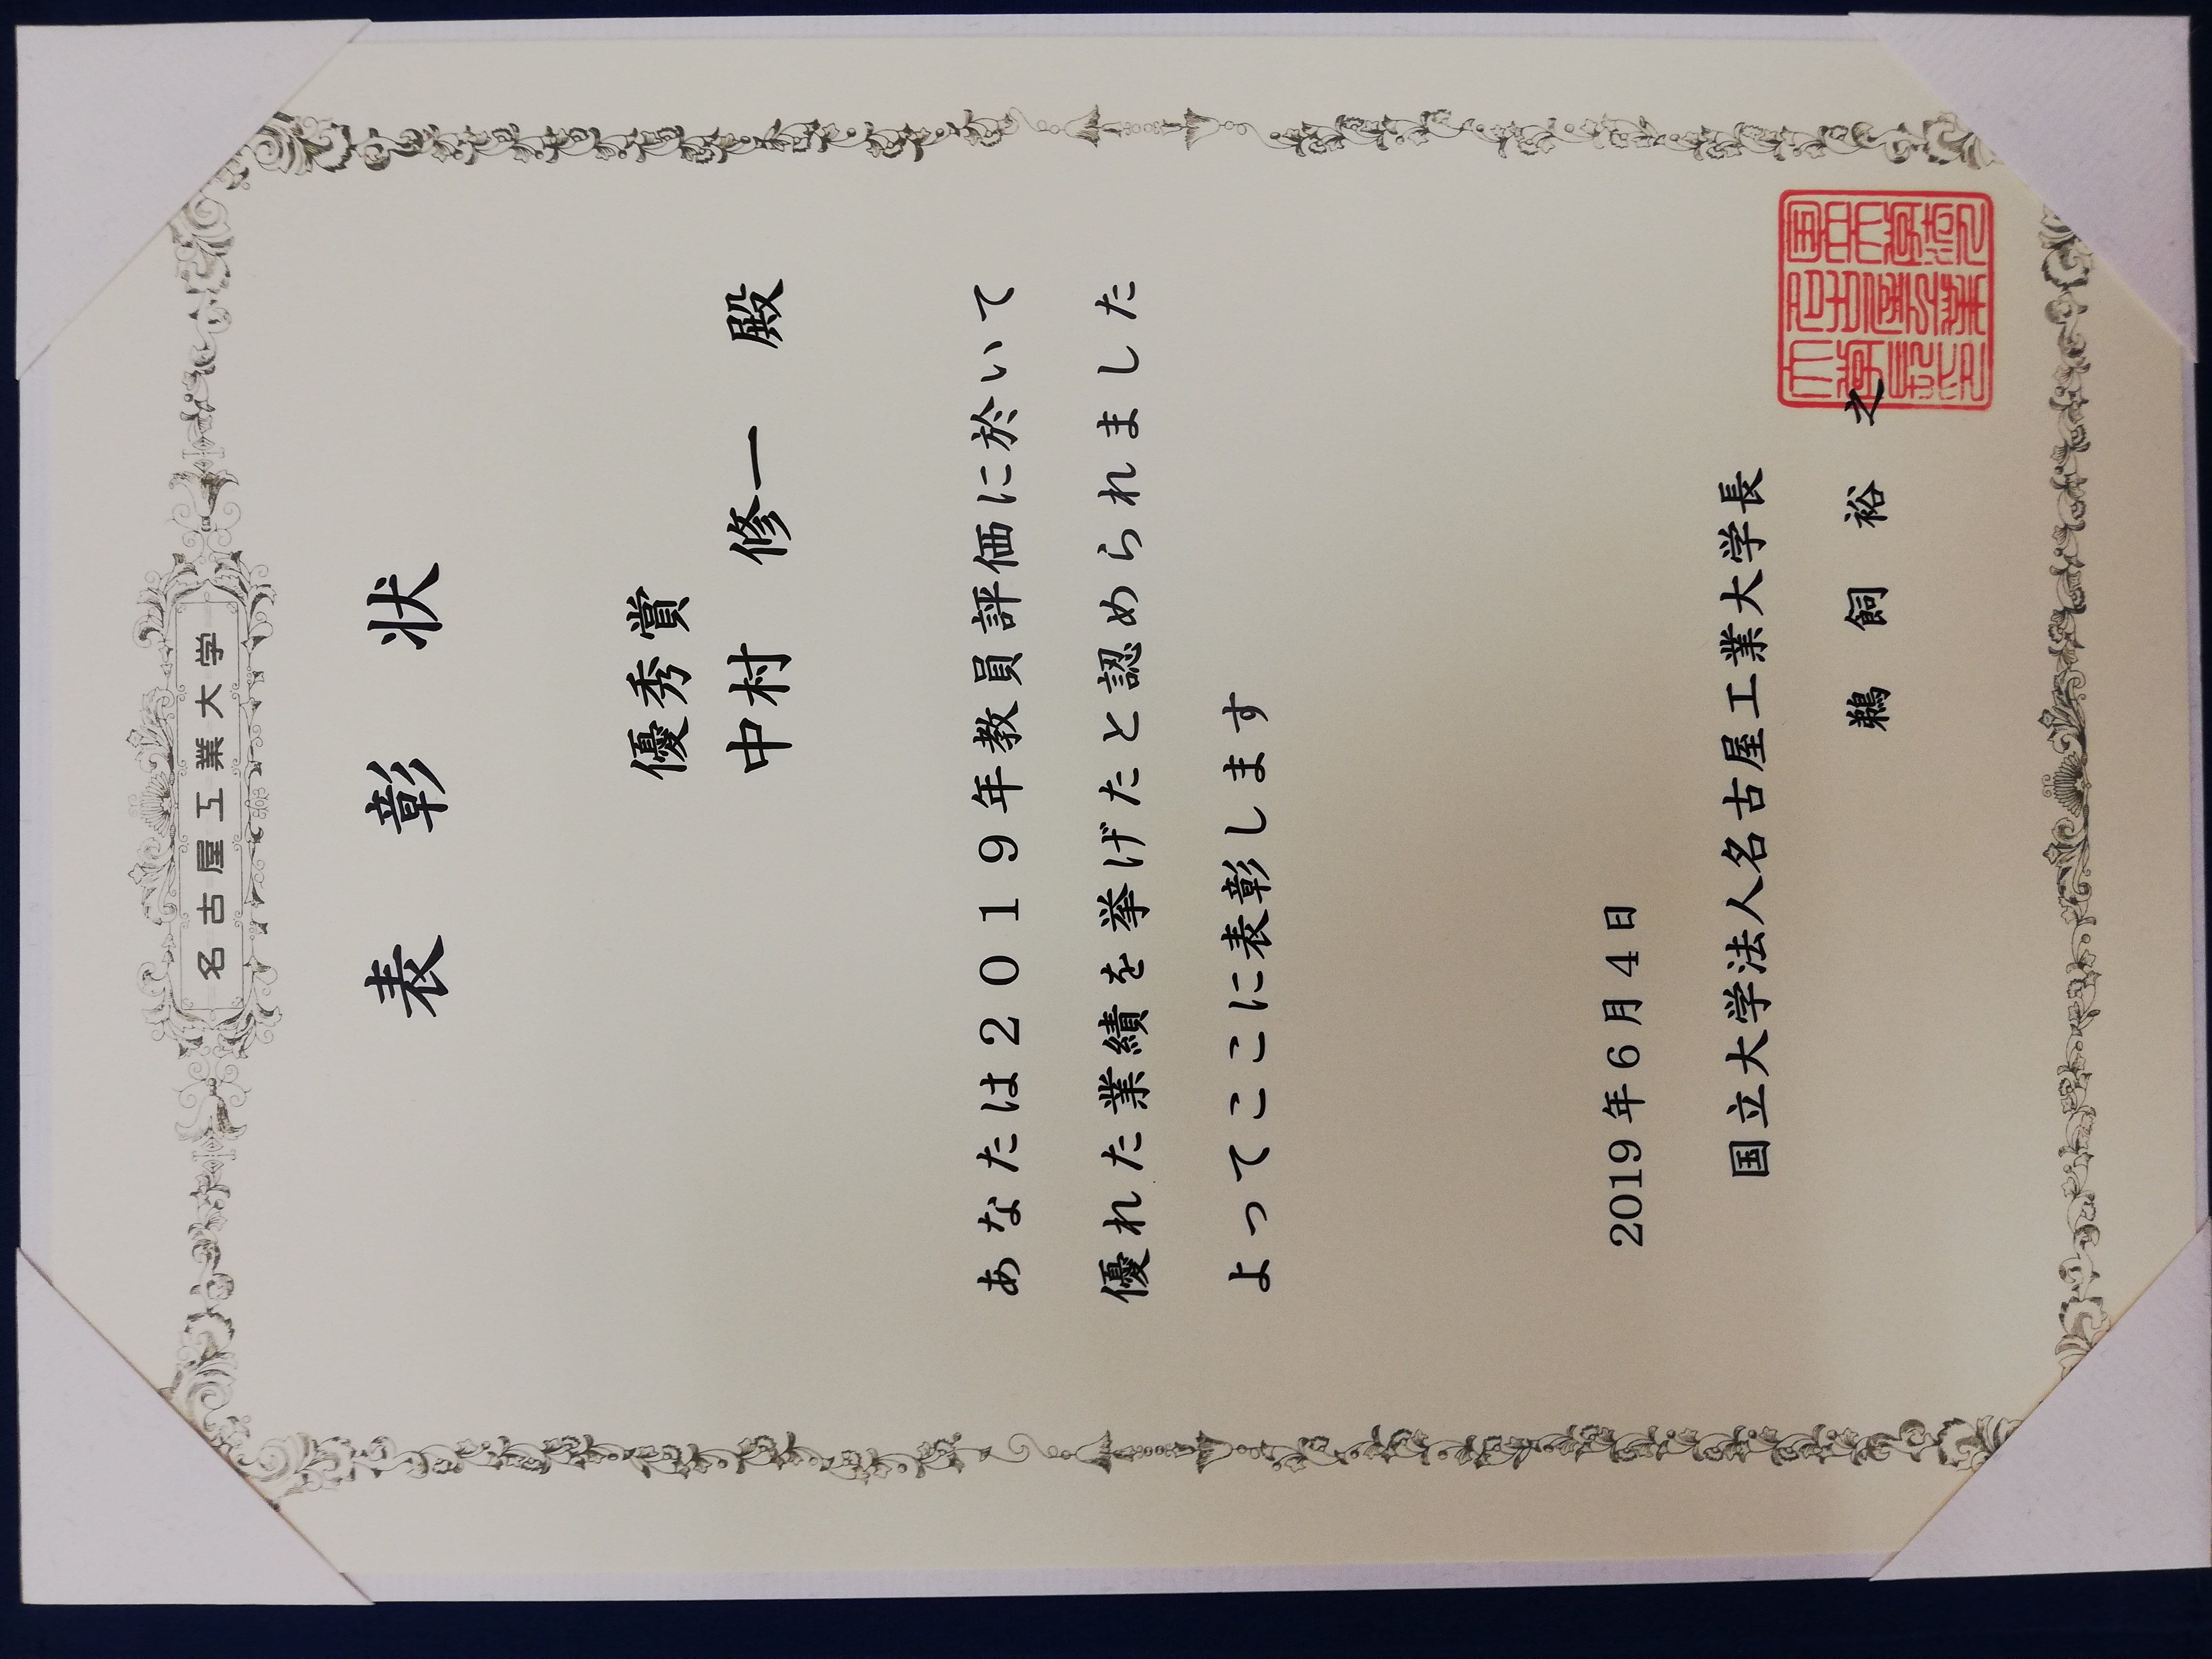 名古屋工業大学
表彰状
優秀賞
中村 修一 殿
あなたは2019年教員評価に於いて
優れた業績を挙げたと認められました
よってここに表彰します
2019年6月4日
国立大学法人名古屋工業大学長
鵜飼裕之